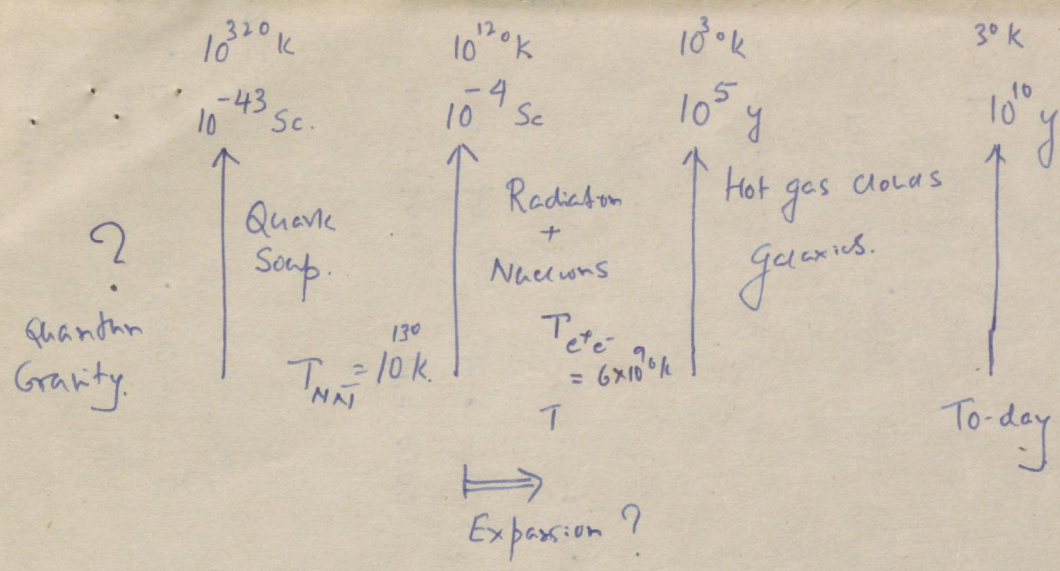 10³²°K 10¹²°K 10³°K 3°K
10⁻⁴³ Sc. 10⁻⁴ Sc 10⁵ y 10¹⁰ y
?
Quantum
Gravity.
Quark
Soup.
T_NN̄ = 10¹³°K.
Radiation
+
Nucleons
T_e⁺e⁻
= 6×10⁹°K
T
Hot gas clouds
Galaxies.
To-day
Expansion ?